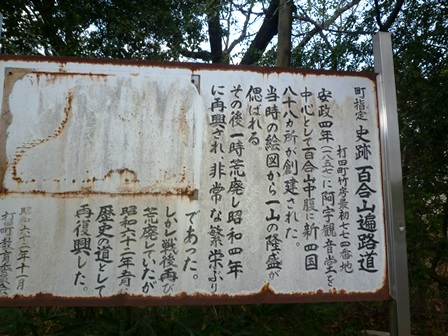 町指定 史跡 百合山遍路道
打田町竹房最初七七四番地
安政四年(一八五七)に阿字観音堂を
中心として百合山中腹に新四国
八十八カ所が創建された。
当時の絵図から一山の隆盛が
偲ばれる。
その後一時荒廃し昭和四年
に再興され、非常な繁栄ぶり
であった。
しかし戦後再び
荒廃していたが
昭和六十二年五月
歴史の道として
再復興した。
昭和六十二年十一月
打田町教育委員会